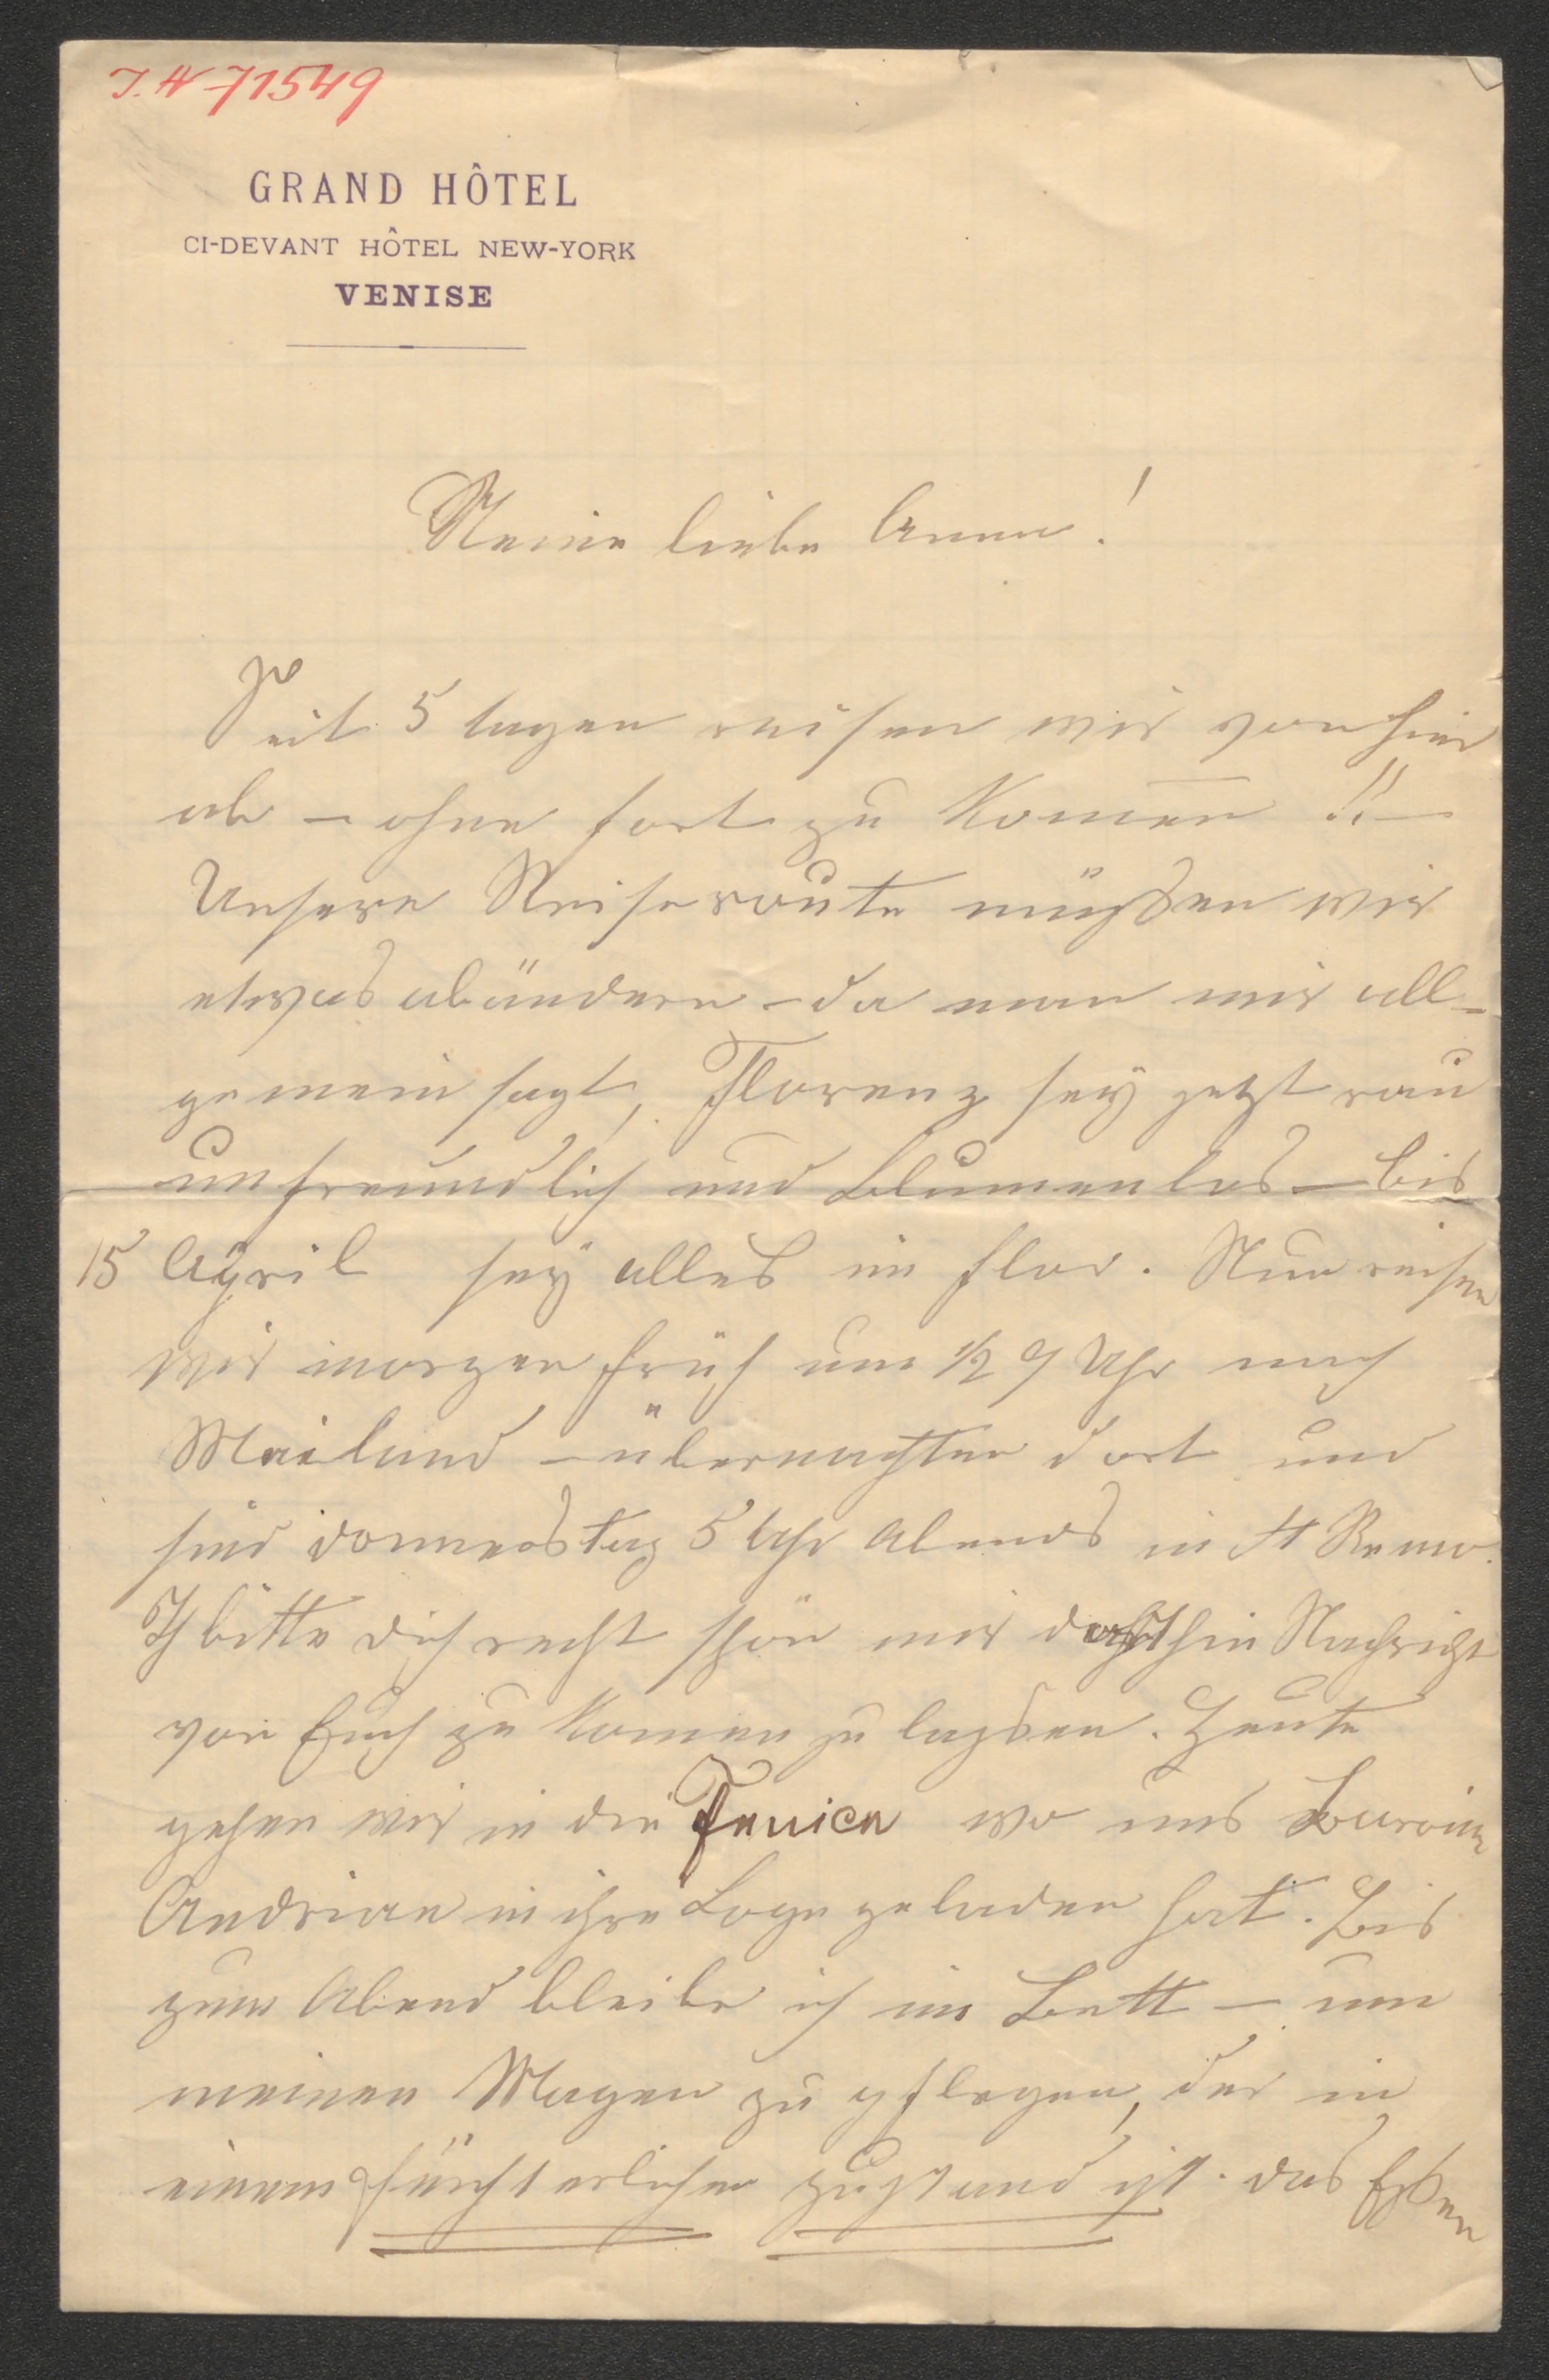 I. N 71549
GRAND HÔTEL
CI-DEVANT HÔTEL NEW-YORK
VENISE
Meine liebe Anna!
Seit 5 tagen reisen wir von hier
ab – ohne fort zu komen̄ !! –
Unsere Reiseroute müßen wir
etwas abändern – da man mir all-
gemein sagt, Florenz seÿ jetzt rau
unfreundlich und blumenlos – bis
15 April seÿ alles im flor. Nun reisen
wir morgen früh um ½ 9 Uhr nach
Mailand – übernachten dort und
sind donnerstag 5 Uhr Abends in St Remo.
Ich bitte dich recht schön mir dorthin Nachricht
von Euch zu komen zu laßen. Heute
gehen wir in die Fenice wo uns Baronin
Andrian in ihre Loge geladen hat. Bis
zum Abend bleibe ich im Bett – um
meinen Magen zu pflegen, der in
einem fürchterlichen zustand ist. das Eßen